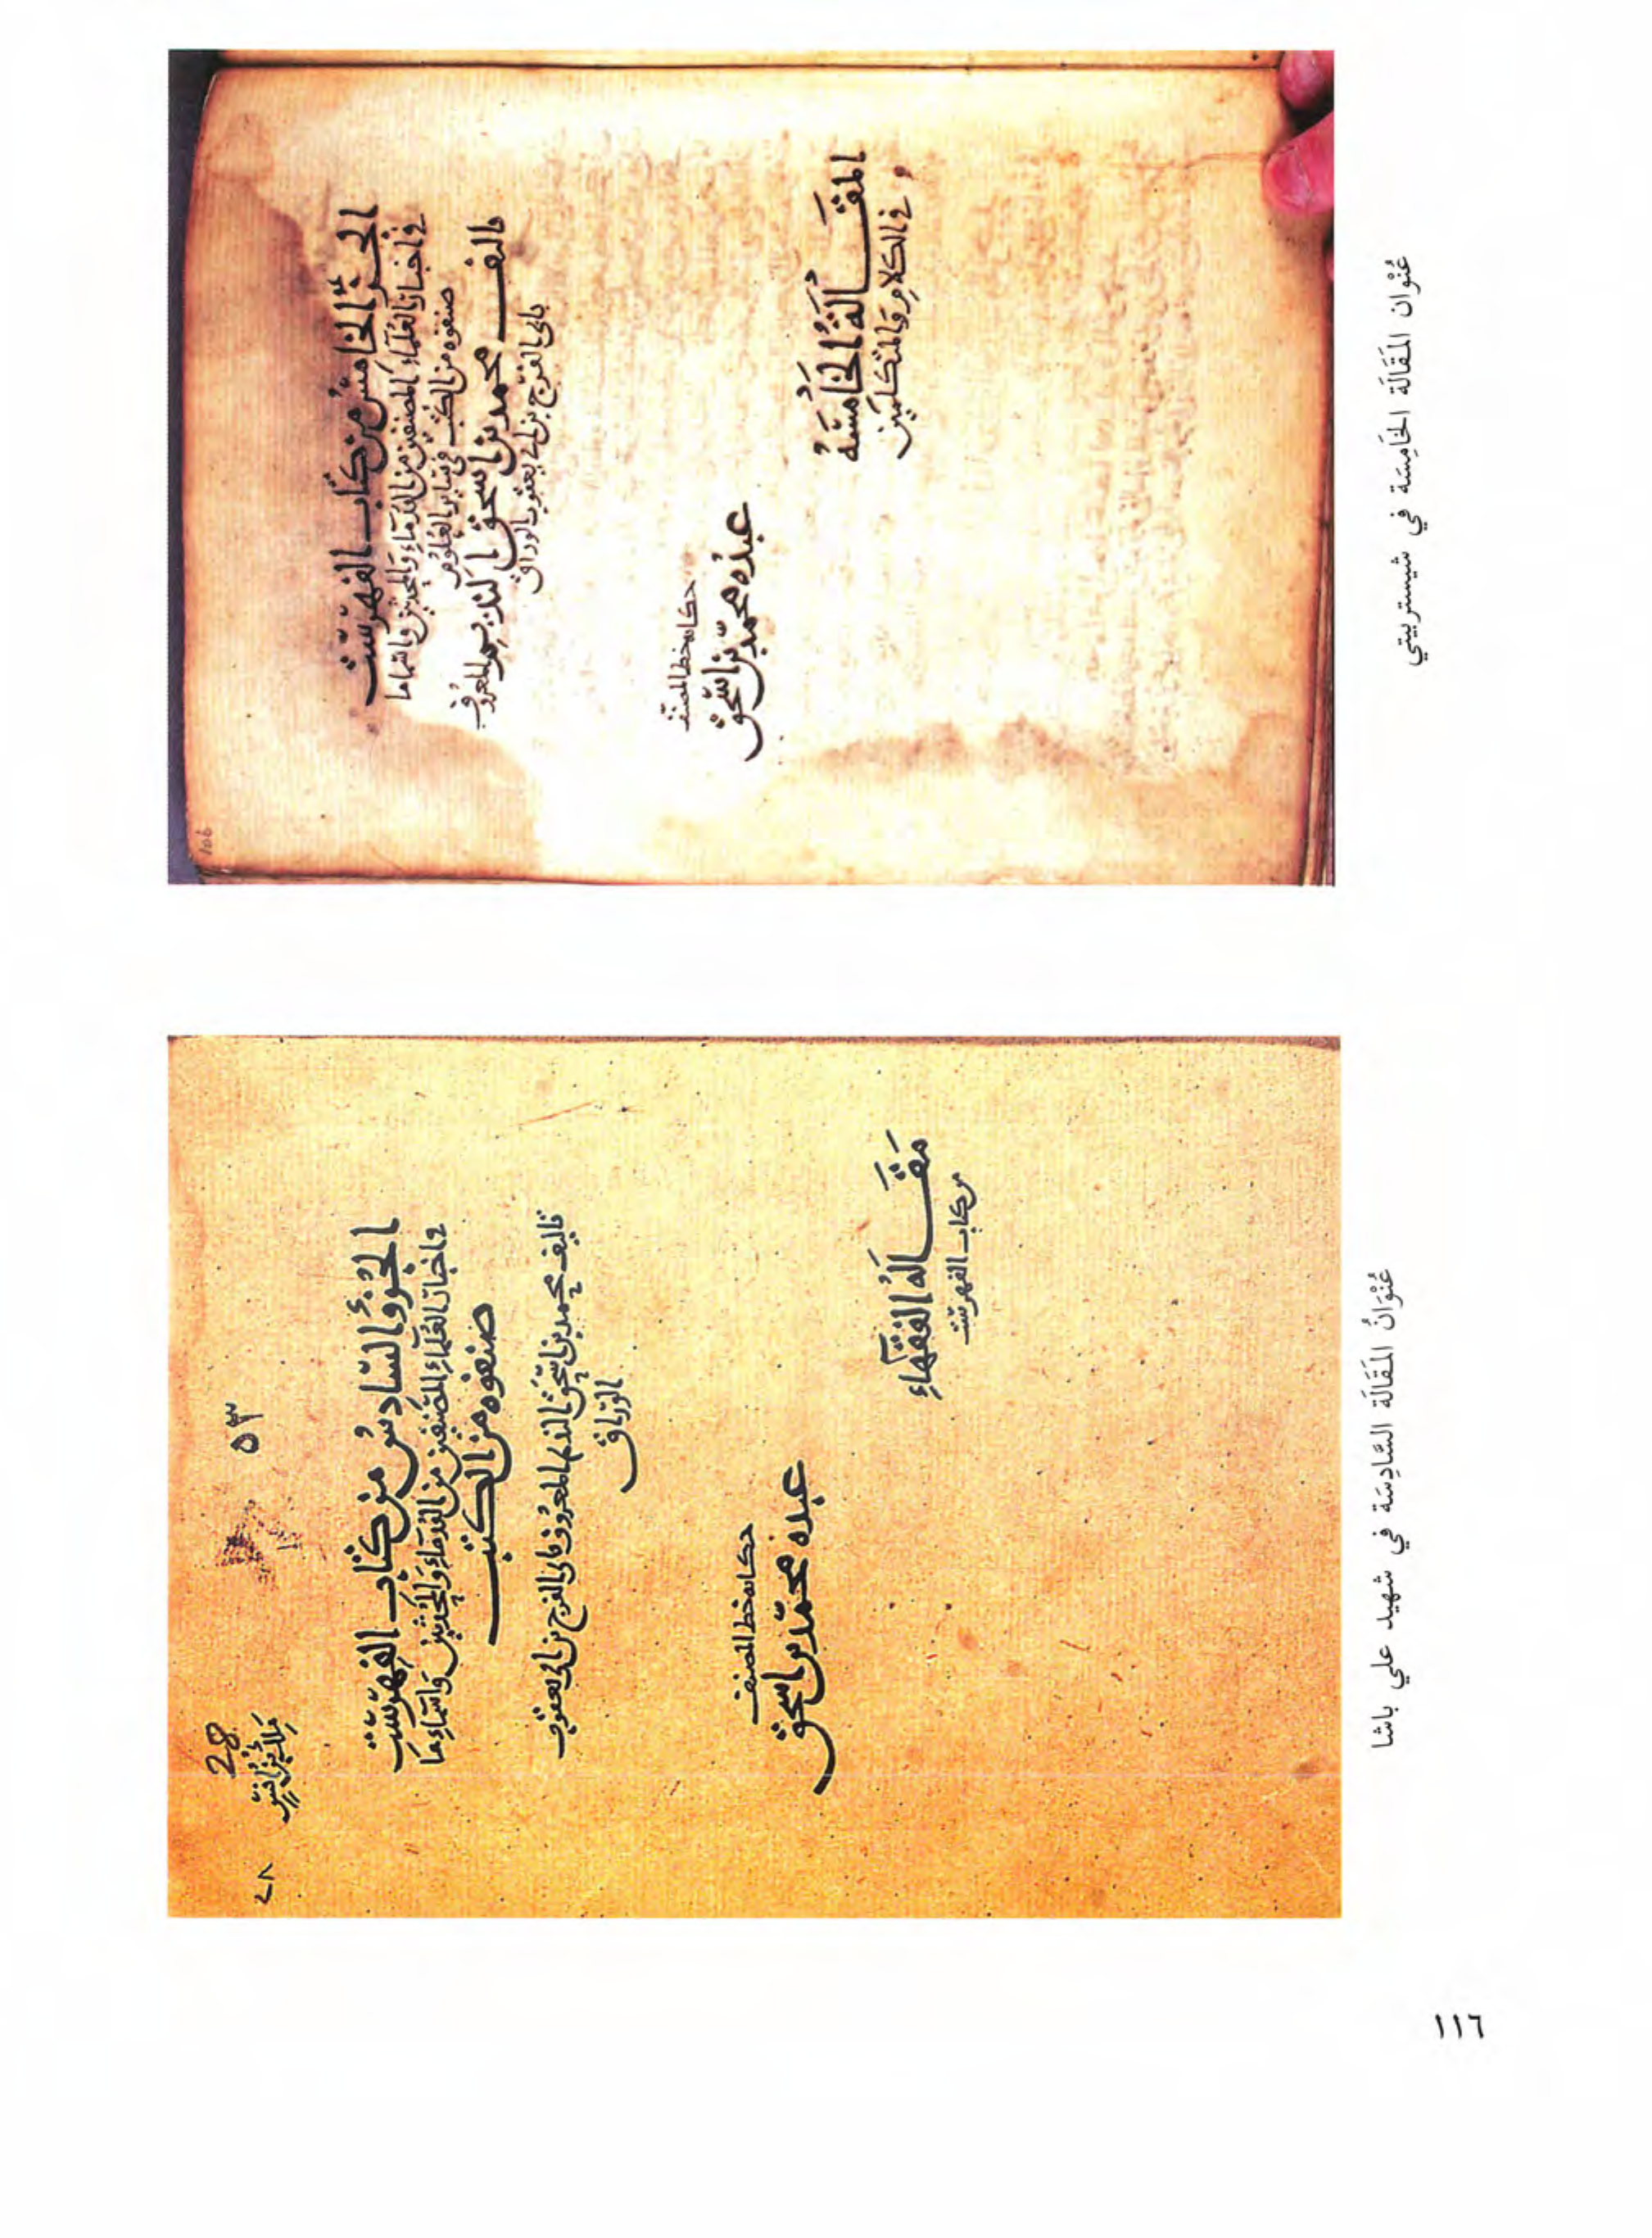 106
الجزؤ الخامس من كتاب الفهرست
في اخبار العلماء المصنفين من القدماء والمحدثين واسماء ما
صنفوه من الكتب في سائر العلوم
تاليف محمد بن اسحق النديم المعروف
بابي الفرج بن ابي يعقوب الوراق
حكايه خط المصنف
عبده محمد بن اسحق
المقالة الخامسة
في الكلام والمتكلمين
عُنْوان المَقَالَة الخَامِسَة في شيستربيتي
٥٣
28
٢٨
الجُزؤ السّادسُ من كتاب الفهرست
في اخبار العُلماء المصنفين من القُدماء والمُحدثين واسماء ما
صنفوه من الكتب
تاليف محمد بن اسحق النديم المعروف بابي الفرج بن ابي يعقوب
الوراق
حكايه خط المصنف
عبده محمد بن اسحق
مَقَالَةُ الفقهاءِ
من كتاب الفهرست
عُنْوَانُ المَقَالَة السَّادِسَة في شهيد علي باشا
١١٦